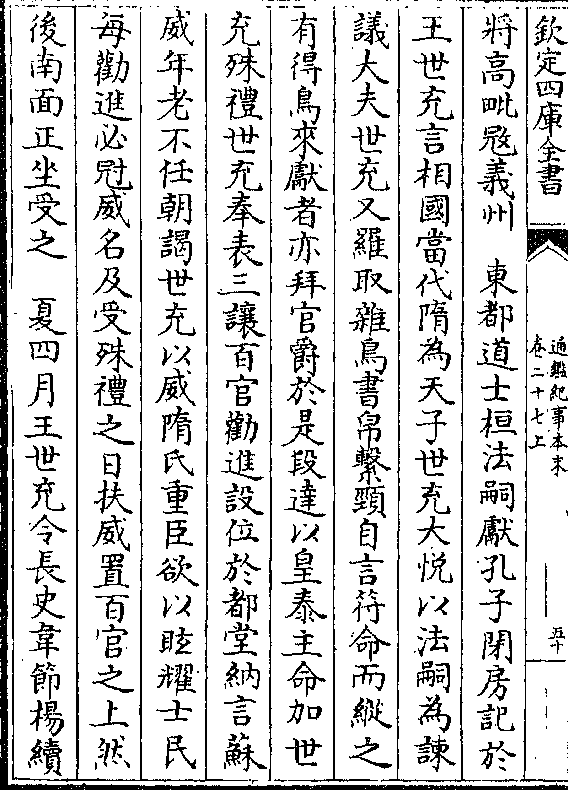 欽定四庫全書
通鑑紀事本末
卷二十七上
五十
將高毗㓂義州　東都道士桓法嗣獻孔子閉房記於
王世充言相國當代隋為天子世充大悦以法嗣為諫
議大夫世充又羅取雜鳥書帛繫頸自言符命而縱之
有得鳥來獻者亦拜官爵於是段達以皇泰主命加世
充殊禮世充奉表三讓百官勸進設位於都堂納言蘇
威年老不任朝謁世充以威隋氏重臣欲以眩耀士民
每勸進必冠威名及受殊禮之日扶威置百官之上然
後南面正坐受之　夏四月王世充令長史韋節楊續